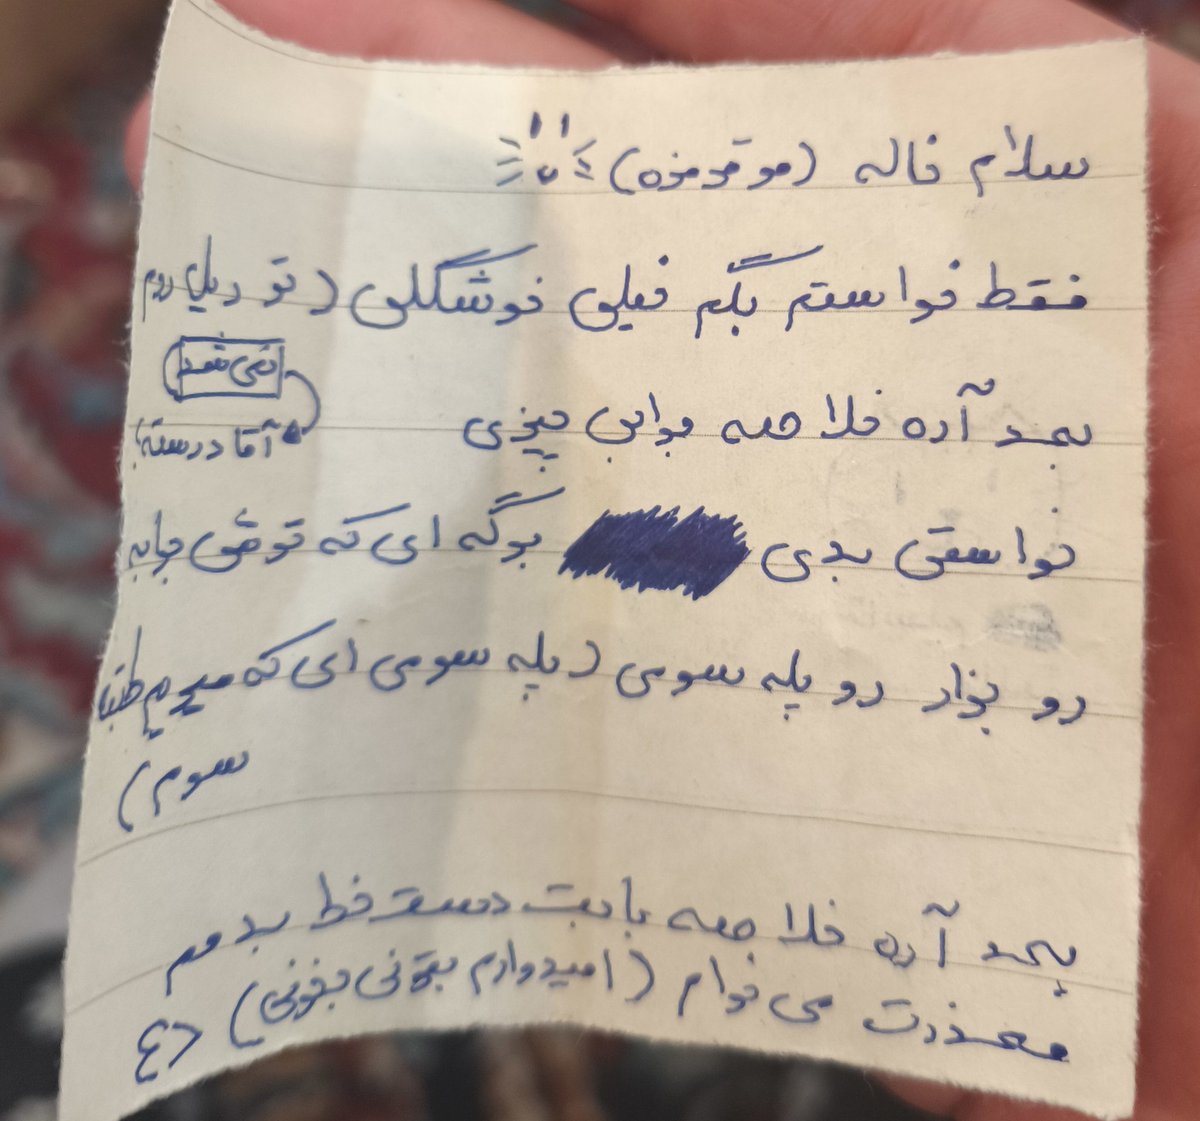 سلام خاله (مو قرمزه)
فقط خواستم بگم خیلی خوشگلی (تو ریلی روم
نمی شد
بعد آره خلاصه جوابی چیزی
آقا درسته؛
خواستی بدی برگه ای که توشی جابه
رو بزار رو پله سومی (پله سومی ای که میریم طبقه
سوم)
بعد آره خلاصه بابت دست خط بدمم
معذرت می خوام (امیدوارم بتونی بخونی) <3